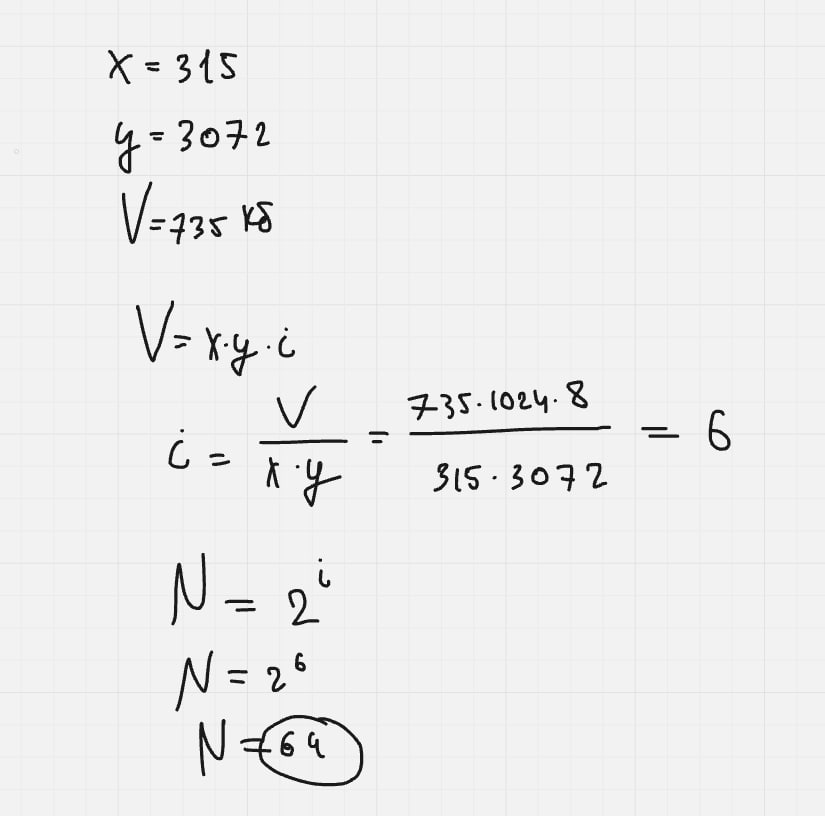 x = 315
y = 3072
V = 735 кб
V = x·y·i
i = V / x·y = 735·1024·8 / 315·3072 = 6
N = 2^i
N = 2^6
N = 64